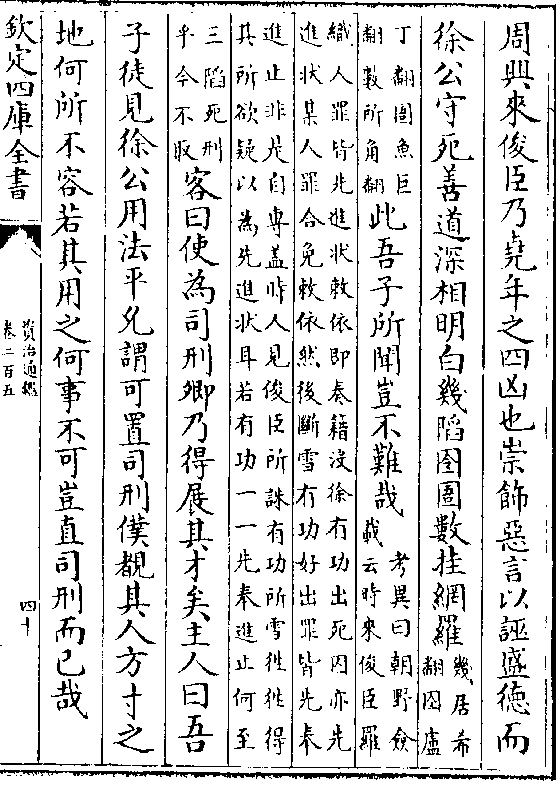 周興來俊臣乃堯年之四凶也崇飾惡言以誣盛德而
徐公守死善道深相明白幾陷囹圄數挂網羅
幾居希
翻囹盧
丁翻圄魚巨
翻數所角翻
此吾子所聞豈不難哉
考異曰朝野僉
載云時來俊臣羅
織人罪皆先進狀敕依即奏籍沒徐有功出死囚亦先
進狀某人罪合免敕依然後斷雪有功好出罪皆先奉
進止非是自專蓋時人見俊臣所誅有功所雪往往得
其所欲疑以為先進狀耳若有功一一先奉進止何至
三陷死刑
乎今不取
客曰使為司刑卿乃得展其才矣主人曰吾
子徒見徐公用法平允謂可置司刑僕覩其人方寸之
地何所不容若其用之何事不可豈直司刑而已哉
欽定四庫全書
資治通鑑
卷二百五
四十